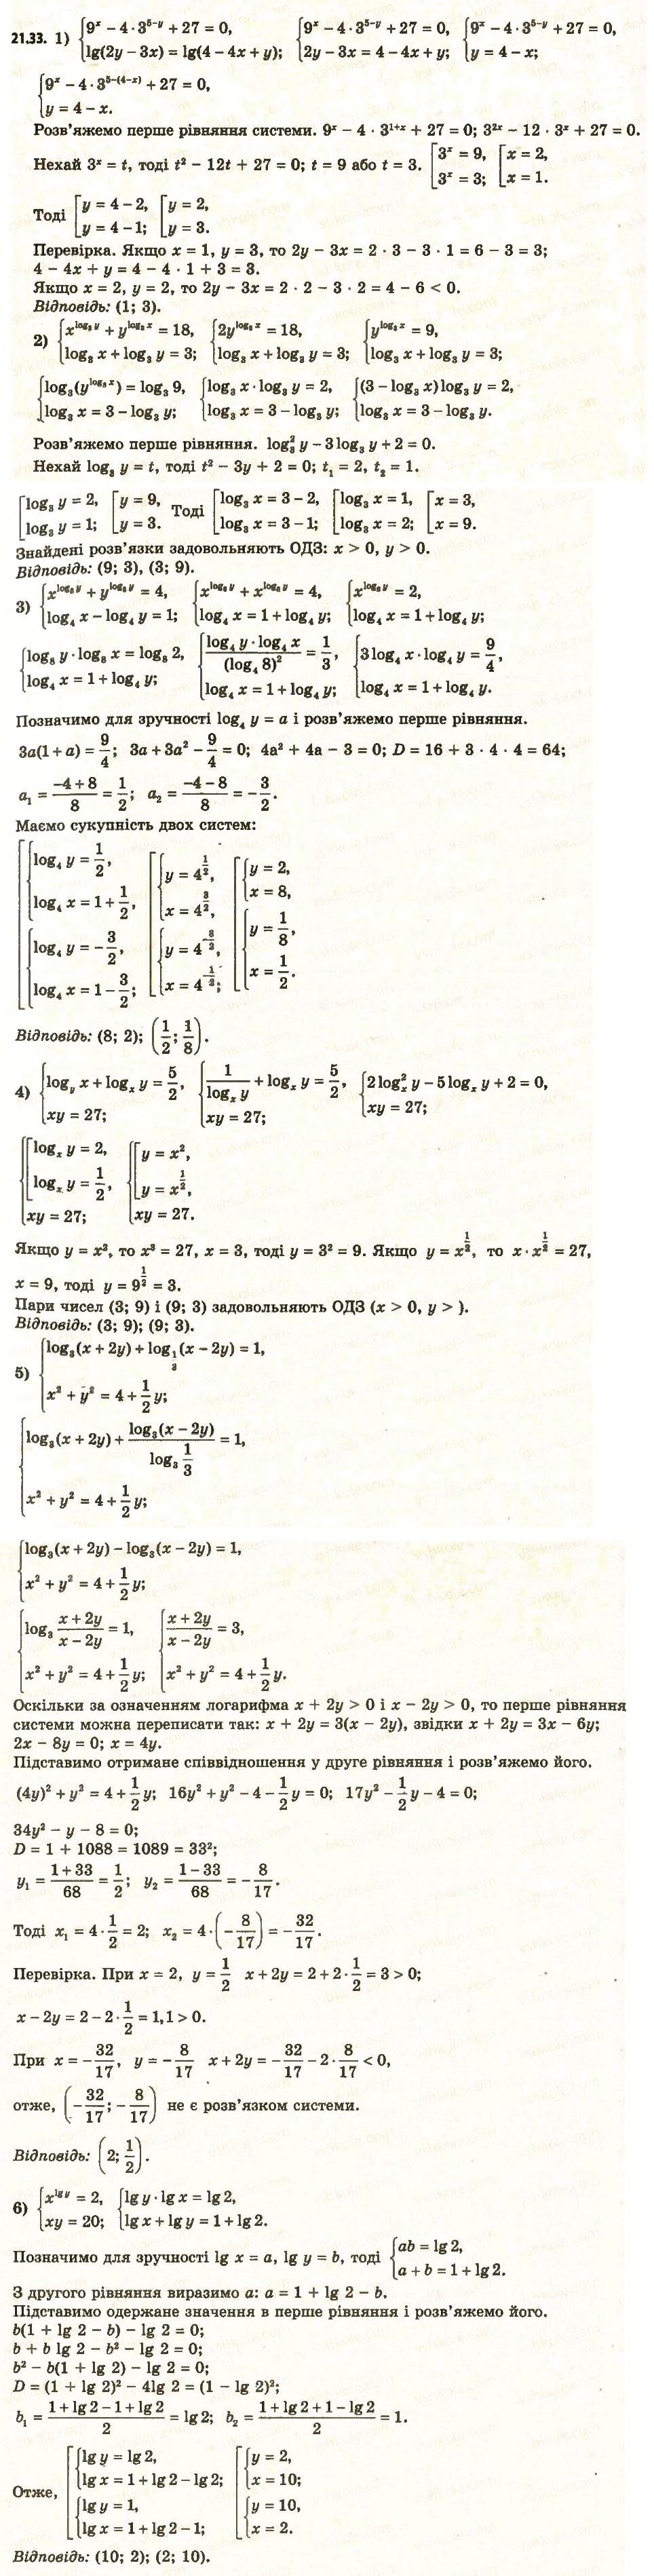 21.33. 1) {9ˣ − 4 · 3⁵⁻ʸ + 27 = 0, lg(2y − 3x) = lg(4 − 4x + y); {9ˣ − 4 · 3⁵⁻ʸ + 27 = 0, 2y − 3x = 4 − 4x + y; {9ˣ − 4 · 3⁵⁻ʸ + 27 = 0, y = 4 − x;
{9ˣ − 4 · 3^(5−(4−x)) + 27 = 0, y = 4 − x.
Розв'яжемо перше рівняння системи. 9ˣ − 4 · 3¹⁺ˣ + 27 = 0; 3²ˣ − 12 · 3ˣ + 27 = 0.
Нехай 3ˣ = t, тоді t² − 12t + 27 = 0; t = 9 або t = 3. [3ˣ = 9, 3ˣ = 3; [x = 2, x = 1.
Тоді [y = 4 − 2, y = 4 − 1; [y = 2, y = 3.
Перевірка. Якщо x = 1, y = 3, то 2y − 3x = 2 · 3 − 3 · 1 = 6 − 3 = 3;
4 − 4x + y = 4 − 4 · 1 + 3 = 3.
Якщо x = 2, y = 2, то 2y − 3x = 2 · 2 − 3 · 2 = 4 − 6 < 0.
Відповідь: (1; 3).
2) {x^(log₃ y) + y^(log₃ x) = 18, log₃ x + log₃ y = 3; {2y^(log₃ x) = 18, log₃ x + log₃ y = 3; {y^(log₃ x) = 9, log₃ x + log₃ y = 3;
{log₃(y^(log₃ x)) = log₃ 9, log₃ x = 3 − log₃ y; {log₃ x · log₃ y = 2, log₃ x = 3 − log₃ y; {(3 − log₃ x)log₃ y = 2, log₃ x = 3 − log₃ y.
Розв'яжемо перше рівняння. log₃² y − 3 log₃ y + 2 = 0.
Нехай log₃ y = t, тоді t² − 3y + 2 = 0; t₁ = 2, t₂ = 1.
[log₃ y = 2, log₃ y = 1; [y = 9, y = 3. Тоді [log₃ x = 3 − 2, log₃ x = 3 − 1; [log₃ x = 1, log₃ x = 2; [x = 3, x = 9.
Знайдені розв'язки задовольняють ОДЗ: x > 0, y > 0.
Відповідь: (9; 3), (3; 9).
3) {x^(log₈ y) + y^(log₈ x) = 4, log₄ x − log₄ y = 1; {x^(log₈ y) + x^(log₈ y) = 4, log₄ x = 1 + log₄ y; {x^(log₈ y) = 2, log₄ x = 1 + log₄ y;
{log₈ y · log₈ x = log₈ 2, log₄ x = 1 + log₄ y; {(log₄ y · log₄ x)/(log₄ 8)² = 1/3, log₄ x = 1 + log₄ y; {3 log₄ x · log₄ y = 9/4, log₄ x = 1 + log₄ y.
Позначимо для зручності log₄ y = a і розв'яжемо перше рівняння.
3a(1 + a) = 9/4; 3a + 3a² − 9/4 = 0; 4a² + 4a − 3 = 0; D = 16 + 3 · 4 · 4 = 64;
a₁ = (−4 + 8)/8 = 1/2; a₂ = (−4 − 8)/8 = −3/2.
Маємо сукупність двох систем:
[{log₄ y = 1/2, log₄ x = 1 + 1/2, {log₄ y = −3/2, log₄ x = 1 − 3/2; [{y = 4^(1/2), x = 4^(3/2), {y = 4^(−3/2), x = 4^(−1/2); [{y = 2, x = 8, {y = 1/8, x = 1/2.
Відповідь: (8; 2); (1/2; 1/8).
4) {log_y x + log_x y = 5/2, xy = 27; {1/(log_x y) + log_x y = 5/2, xy = 27; {2 log_x² y − 5 log_x y + 2 = 0, xy = 27;
{[log_x y = 2, log_x y = 1/2, xy = 27; {[y = x², y = x^(1/2), xy = 27.
Якщо y = x², то x³ = 27, x = 3, тоді y = 3² = 9. Якщо y = x^(1/2), то x · x^(1/2) = 27,
x = 9, тоді y = 9^(1/2) = 3.
Пари чисел (3; 9) і (9; 3) задовольняють ОДЗ (x > 0, y > ).
Відповідь: (3; 9); (9; 3).
5) {log₃(x + 2y) + log_(1/3)(x − 2y) = 1, x² + y² = 4 + 1/2 y;
{log₃(x + 2y) + log₃(x − 2y)/log₃ 1/3 = 1, x² + y² = 4 + 1/2 y;
{log₃(x + 2y) − log₃(x − 2y) = 1, x² + y² = 4 + 1/2 y;
{log₃ (x + 2y)/(x − 2y) = 1, x² + y² = 4 + 1/2 y; {(x + 2y)/(x − 2y) = 3, x² + y² = 4 + 1/2 y.
Оскільки за означенням логарифма x + 2y > 0 і x − 2y > 0, то перше рівняння
системи можна переписати так: x + 2y = 3(x − 2y), звідки x + 2y = 3x − 6y;
2x − 8y = 0; x = 4y.
Підставимо отримане співвідношення у друге рівняння і розв'яжемо його.
(4y)² + y² = 4 + 1/2 y; 16y² + y² − 4 − 1/2 y = 0; 17y² − 1/2 y − 4 = 0;
34y² − y − 8 = 0;
D = 1 + 1088 = 1089 = 33²;
y₁ = (1 + 33)/68 = 1/2; y₂ = (1 − 33)/68 = −8/17.
Тоді x₁ = 4 · 1/2 = 2; x₂ = 4 · (−8/17) = −32/17.
Перевірка. При x = 2, y = 1/2 x + 2y = 2 + 2 · 1/2 = 3 > 0;
x − 2y = 2 − 2 · 1/2 = 1,1 > 0.
При x = −32/17, y = −8/17 x + 2y = −32/17 − 2 · 8/17 < 0,
отже, (−32/17; −8/17) не є розв'язком системи.
Відповідь: (2; 1/2).
6) {x^(lg y) = 2, xy = 20; {lg y · lg x = lg 2, lg x + lg y = 1 + lg 2.
Позначимо для зручності lg x = a, lg y = b, тоді {ab = lg 2, a + b = 1 + lg 2.
З другого рівняння виразимо a: a = 1 + lg 2 − b.
Підставимо одержане значення в перше рівняння і розв'яжемо його.
b(1 + lg 2 − b) − lg 2 = 0;
b + b lg 2 − b² − lg 2 = 0;
b² − b(1 + lg 2) − lg 2 = 0;
D = (1 + lg 2)² − 4lg 2 = (1 − lg 2)²;
b₁ = (1 + lg 2 − 1 + lg 2)/2 = lg 2; b₂ = (1 + lg 2 + 1 − lg 2)/2 = 1.
Отже, [{lg y = lg 2, lg x = 1 + lg 2 − lg 2; {lg y = 1, lg x = 1 + lg 2 − 1; [{y = 2, x = 10; {y = 10, x = 2.
Відповідь: (10; 2); (2; 10).